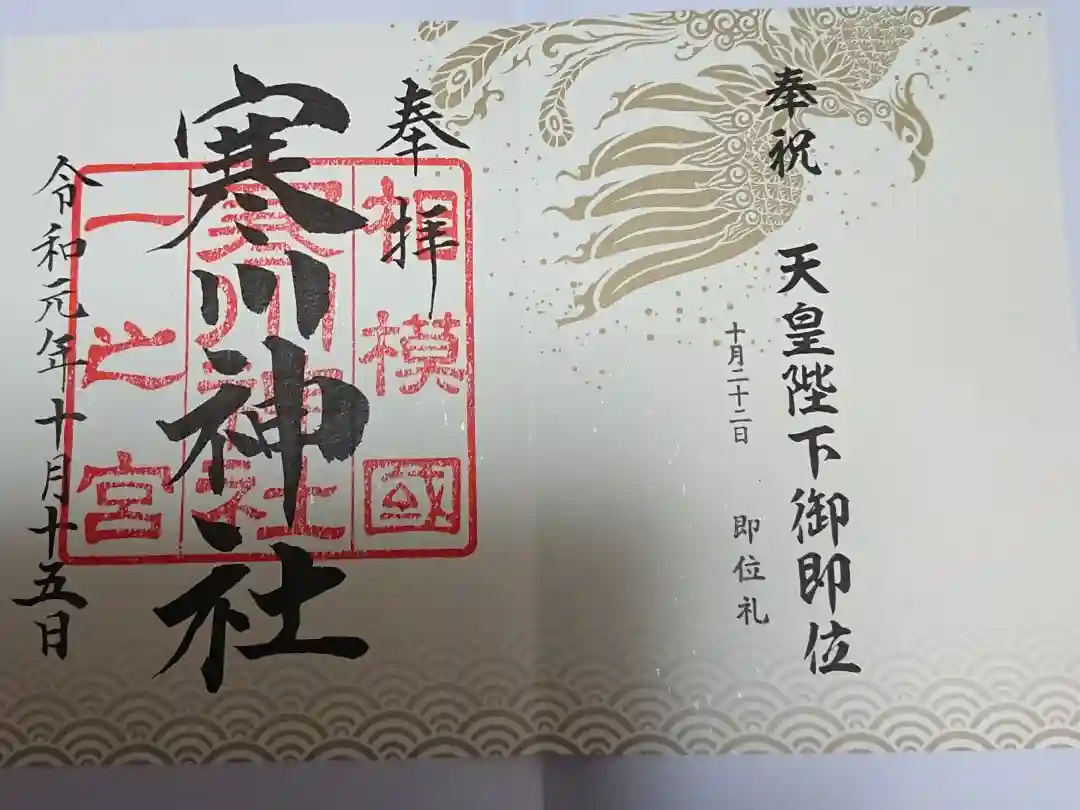 奉祝 天皇陛下御即位
十月二十二日 即位礼
奉拝
相模國
寒川神社
寒川神社
一之宮
令和元年十月十五日